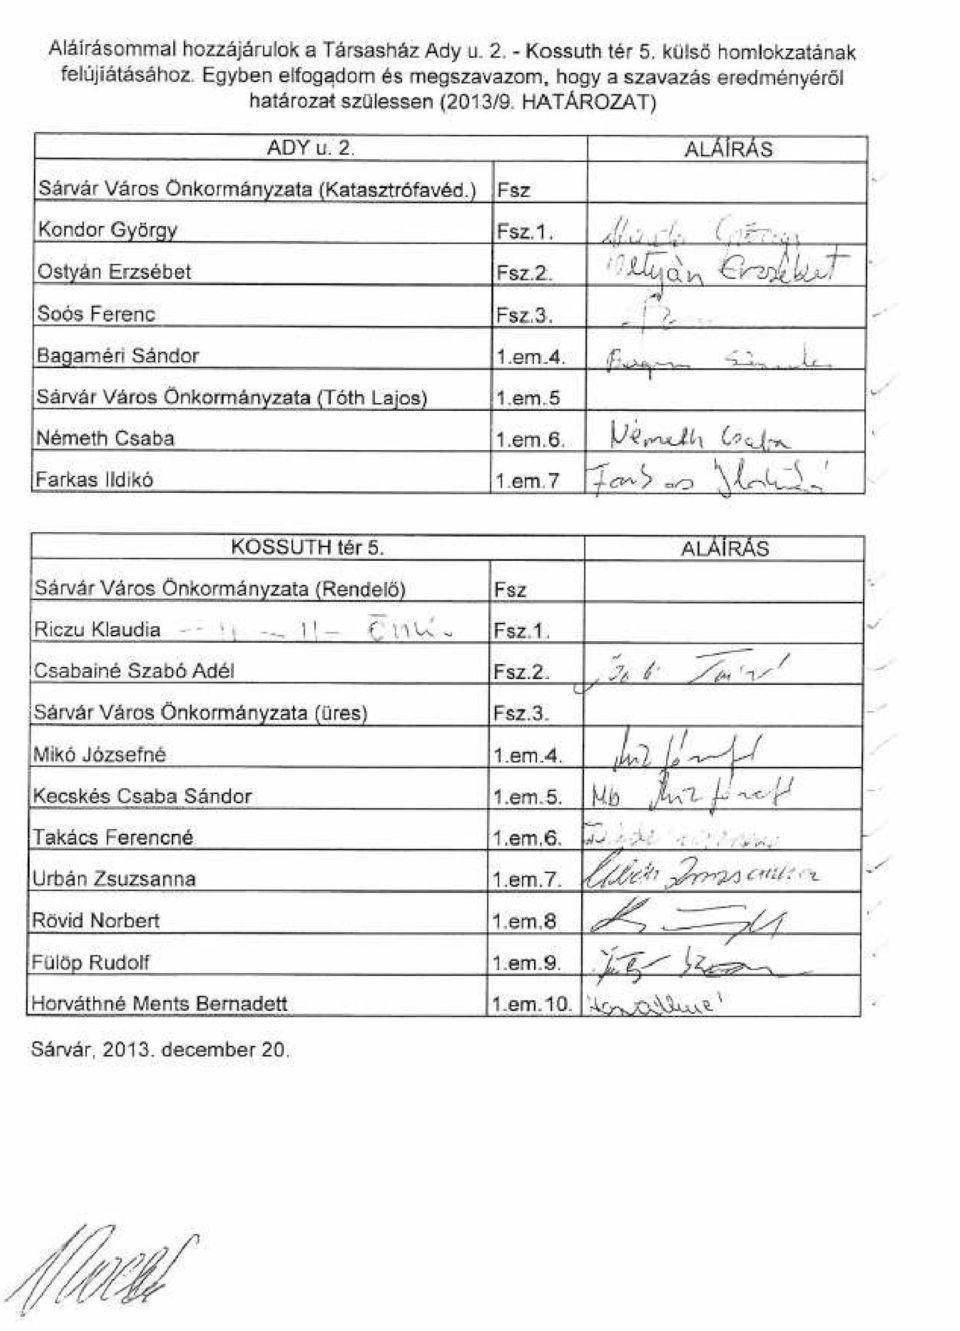 Aláírásommal hozzájárulok a Társasház Ady u. 2. - Kossuth tér 5. külső homlokzatának
felújíátásához. Egyben elfogadom és megszavazom, hogy a szavazás eredményéről
határozat szülessen (2013/9. HATÁROZAT)
ADY u. 2. ALÁÍRÁS
Sárvár Város Önkormányzata (Katasztrófavéd.) Fsz
Kondor György Fsz.1. György
Ostyán Erzsébet Fsz.2. Ostyán Erzsébet
Soós Ferenc Fsz.3.
Bagaméri Sándor 1.em.4.
Sárvár Város Önkormányzata (Tóth Lajos) 1.em.5
Németh Csaba 1.em.6. Németh Csaba
Farkas Ildikó 1.em.7 Farkas Ildikó
KOSSUTH tér 5. ALÁÍRÁS
Sárvár Város Önkormányzata (Rendelő) Fsz
Riczu Klaudia Fsz.1.
Csabainé Szabó Adél Fsz.2.
Sárvár Város Önkormányzata (üres) Fsz.3.
Mikó Józsefné 1.em.4.
Kecskés Csaba Sándor 1.em.5.
Takács Ferencné 1.em.6.
Urbán Zsuzsanna 1.em.7. Urbán Zsuzsanna
Rövid Norbert 1.em.8
Fülöp Rudolf 1.em.9.
Horváthné Ments Bernadett 1.em.10. Horváthné
Sárvár, 2013. december 20.